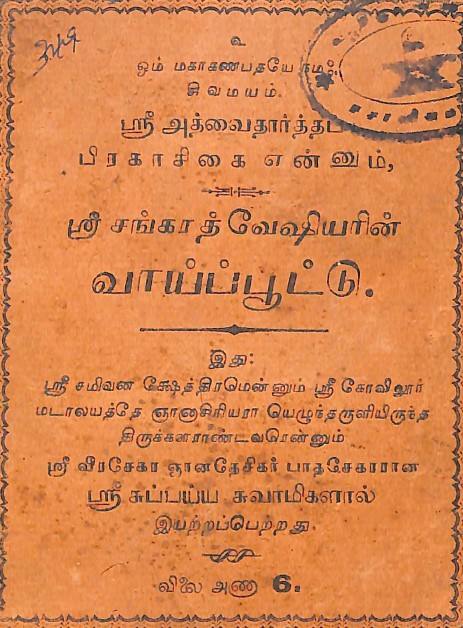 உ
ஓம் மகாகணபதயே நம:
சிவமயம்.
ஸ்ரீ அத்வைதார்த்தப்
பிரகாசிகை என்னும்,
ஸ்ரீ சங்காத்வேஷியரின்
வாய்ப்பூட்டு.
இது:
ஸ்ரீ சமிவன க்ஷேத்திரமென்னும் ஸ்ரீ கோவிலூர்
மடாலயத்தே ஞானாசிரியரா யெழுந்தருளியிருந்த
திருக்களராண்டவரென்னும்
ஸ்ரீ வீரசேகர ஞானதேசிகர் பாதசேகரரான
ஸ்ரீ சுப்பய்ய சுவாமிகளால்
இயற்றப்பெற்றது.
விலை அணா 6.